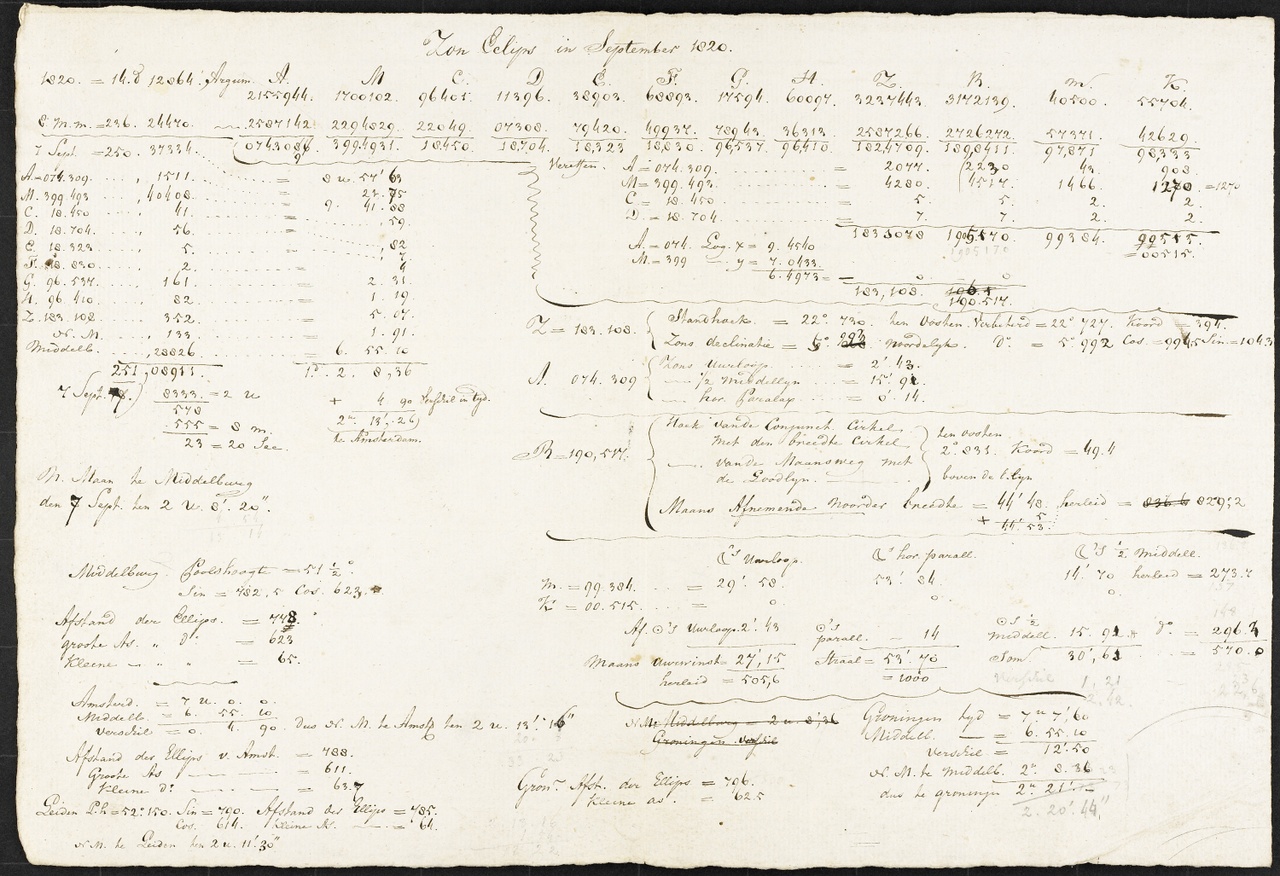 Zon Eclips in September 1820.
1820. = 14.d 12864. Argum. A. M C. D. E. F. G. H. Z. B. m. K.
2155944. 1700102. 96401. 11396. 38903. 68893. 17594. 60097. 3237443. 3172139. 40500. 55704.
8 m.m. = 236. 24470 2587142 2294829. 22049. 07308. 79420. 49937. 78943. 36313. 2587266. 2726272. 57371. 42629
7 Sept. = 250. 37334. 0743086 3994931. 18450. 18704. 18323 18830. 96537. 96410. 1824709. 1898411 97871 98333
A = 074.309. 1511. = 8 u. 57' 63
M. 399.493 40408 23. 75
C. 18.450 41. 9. 41. 88
D. 18.704. 56. 59.
E. 18.323 5. 82
F. 18.830 2.
G. 96.537. 161. 2. 31
H. 96.410 82. 1. 19
Z. 183.108. 352. 5. 07
N. M. 133 1. 91.
Middelb. ,28826 = 6. 55. 10
251,08911. 1.d 2. 8,36
7 Sept. 8333 = 2 u + 4 90 Verschil in tyd.
578 2u 13'. 26
555 = 8 m. te Amsterdam.
23 = 20 Sec.
N. Maan te Middelburg
den 7 Sept. ten 2 u. 8'. 20".
Vereffen. A = 074.309. = 2077. 2230 43. 908.
M = 399.493. = 4280. 4517. 1466. 1270 = 1270
C = 18.450 = 5. 5. 2. 2.
D. = 18.704. = 7. 7. 2. 2.
1833078 99384. 99515.
A. = 074. Log. x = 9. 4540 = 00515.
M. = 399 — y = 7. 0433
6.4973 = — 0 0
183,108. 190.517.
Z = 183.108. Standhoek = 22°. 730. ten Oosten. Verbeterd = 22° 727. Koord = 394.
Zons declinatie = 5°. 993 Noordelyk. D°. = 5°. 992 Cos. = 9945 Sin = 1043
A. 074.309 Zons Uurloop = 2'. 43.
— ½ Middellyn = 15'. 91.
— hor. Paralax = 0'. 14.
B = 190,517. Hoek van de Conjunct Cirkel
met den breedte Cirkel ten oosten
— van de Maansweg met 2. 831. Koord = 49.4
de Goodlyn. boven de E.lyn
Maans Afnemende Noorder breedte = 44' 48. herleid = 829,2
+ 5
44'. 53.
☾'s Uurloop. ☾'s hor. parall. ☾'s ½ Middell.
M. = 99.384. = 29'. 58. 53'. 84. 14'. 70 herleid = 273.7
K = 00.515. = 0 0. 0.
Af. ☉'s Uurloop. 2'. 43 ☉'s parall. - 14 ☉'s ½ middell. 15. 91 d°. = 296.3
Maans Uurwinst = 27', 15 Straal = 53'. 70 Som 30', 61 = 570.0
herleid = 505,6 = 1000 Verschil 1, 21
Middelburg. Poolshoogte = 51 ½°
Sin = 782,5 Cos. 623.
Afstand der Ellips. = 778.
groote As. „ d° = 623
Kleine — „ = 65.
Amsterd. = 7 u. 0. 0.
Middelb = 6. 55. 10
Verschil = 0. 4. 90. Dus N. M. te Amsd ten 2 u. 13'. 16"
Afstand des Ellips v. Amst. = 788.
Groote As = 611.
Kleine d° = 63.7
Leiden P.h = 52°.150. Sin = 790. Afstand des Ellips = 785.
Cos. 614. Kleine As. = 64.
N M. te Leiden ten 2 u. 11'. 30"
N.M. Middelburg = 2 u. 8',36
Groningen Verschil
Gron.n Afst. der Ellips = 796.
Kleine as. = 62.5
Groningen tyd = 7u 7',60
Middelb. = 6. 55. 10
Verschil = 12'. 50
N. M. te Middelb. 2u. 8. 36
dus te Groningen 2u. 21'. —
2. 20'. 44"